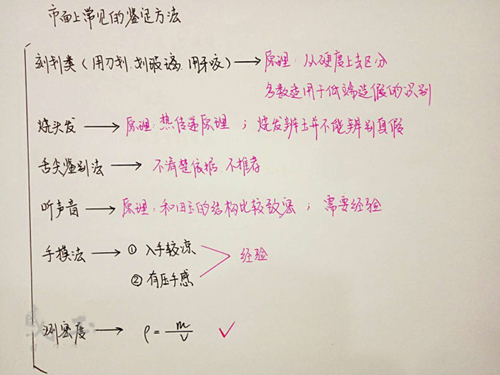 市面上常见的鉴定方法
刻划类（用刀划，划玻璃，用牙咬）→ 原理：从硬度上去区分
多数适用于低端造假的识别
烧头发 → 原理：热传递原理；烧发辨玉并不能辨别真假
舌尖鉴别法 → 不清楚依据 不推荐
听声音 → 原理：和田玉的结构比较致密；需要经验
手摸法 → ① 入手较凉
② 有压手感
经验
测密度 → ρ = m/V ✓